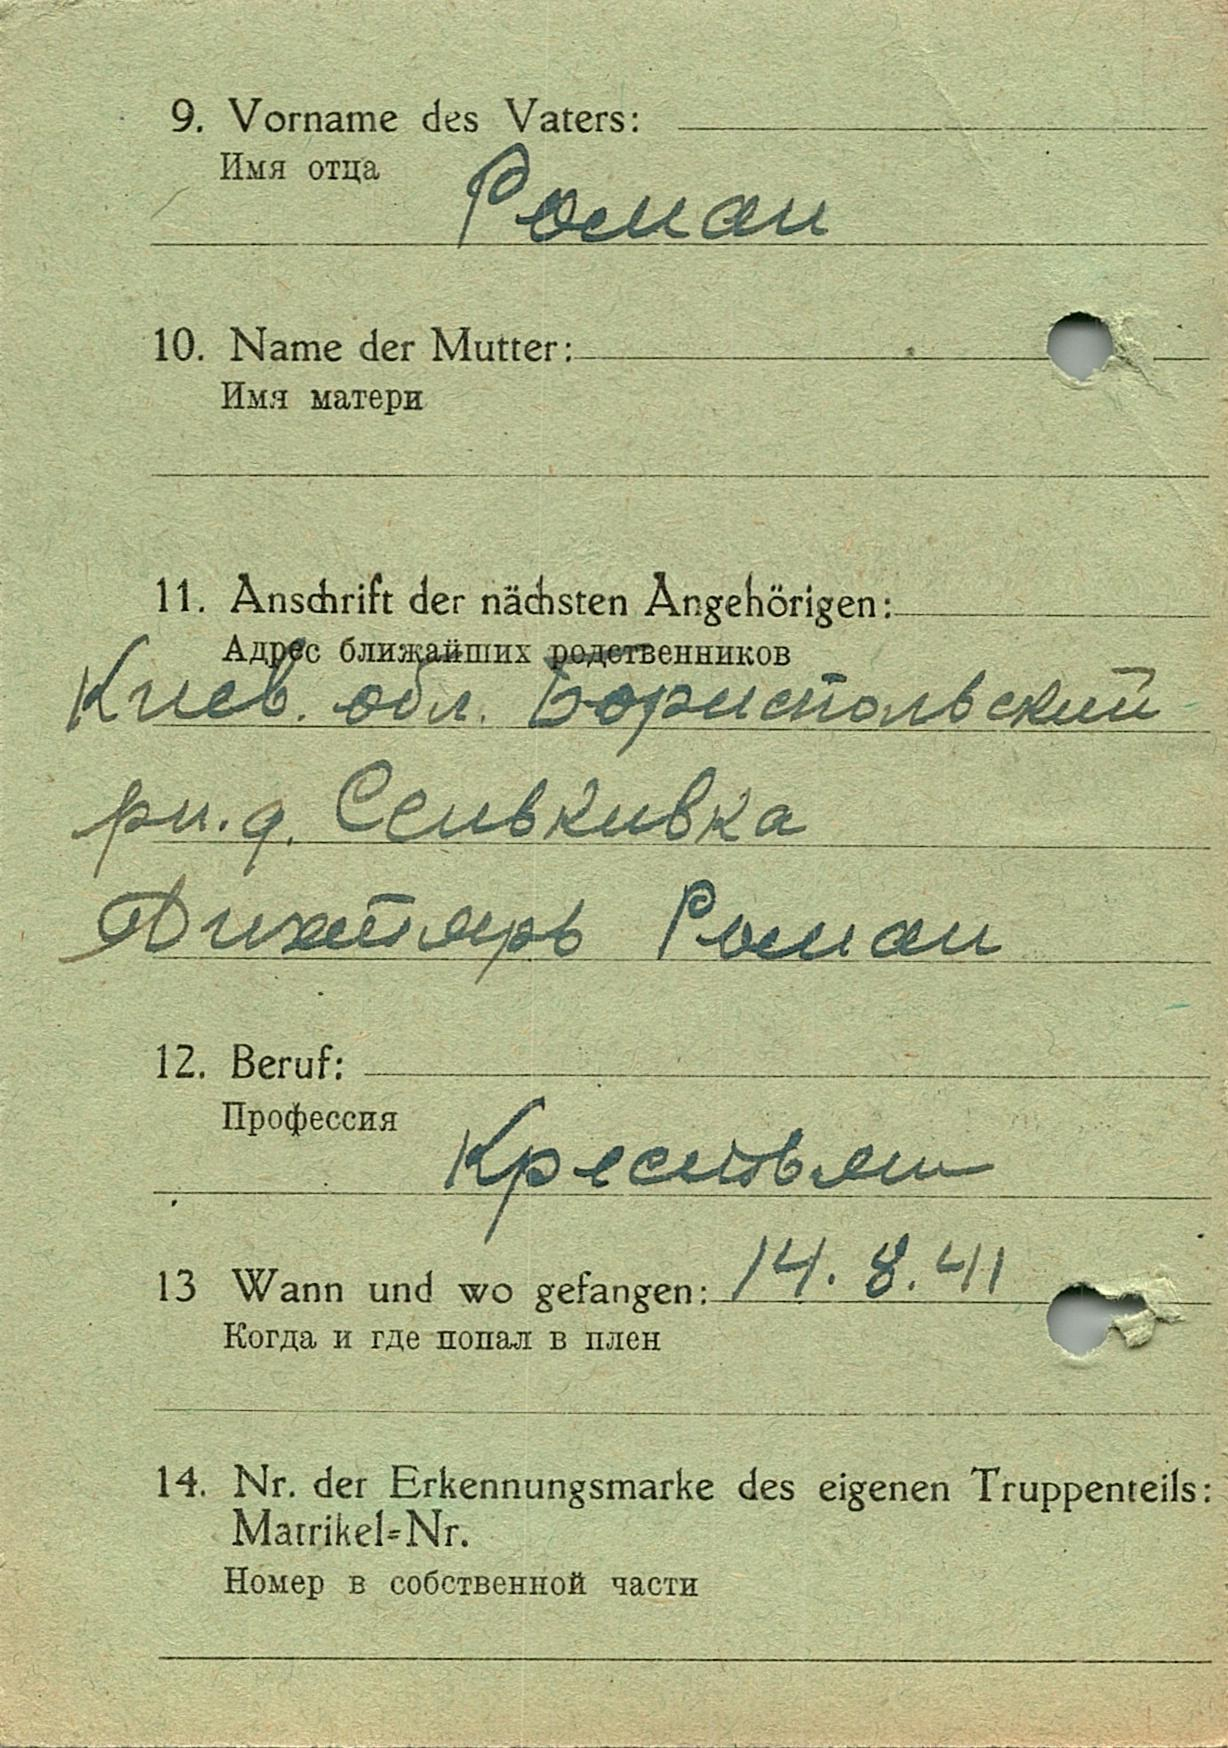 9. Vorname des Vaters:
Имя отца
Роман
10. Name der Mutter:
Имя матери
11. Anschrift der nächsten Angehörigen:
Адрес ближайших родственников
Киев. обл. Бориспольский
рн. д. Сеньківка
Дихтярь Роман
12. Beruf:
Профессия
Крестьян
13 Wann und wo gefangen: 14. 8. 41
Когда и где попал в плен
14. Nr. der Erkennungsmarke des eigenen Truppenteils:
Matrikel=Nr.
Номер в собственной части